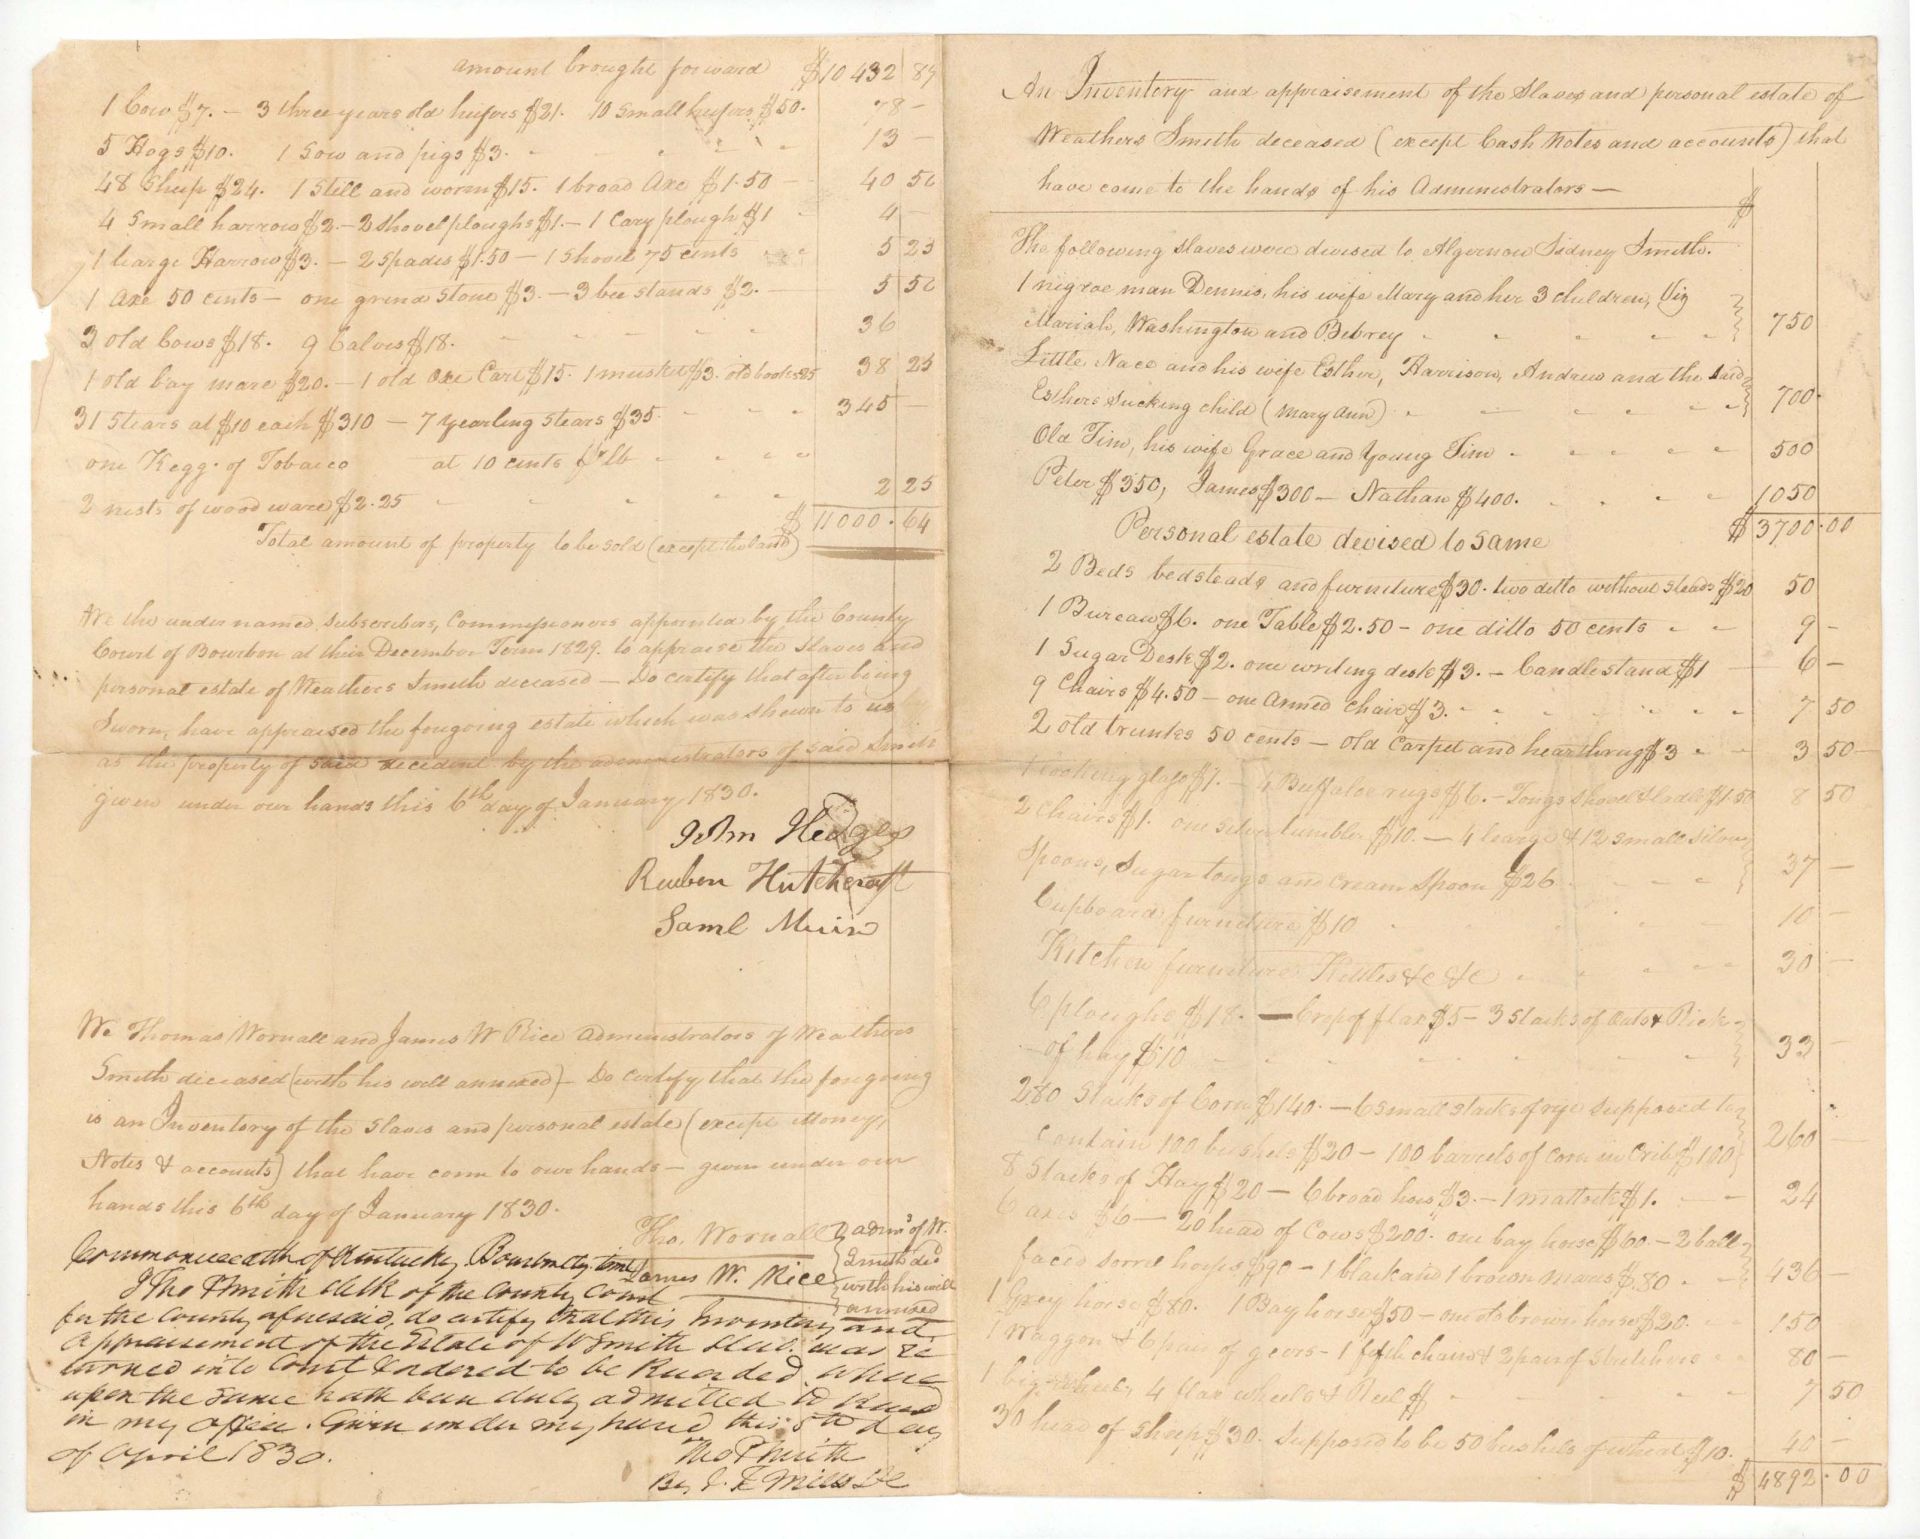 amount brought forward $10 432 89
1 Cow $7. — 3 three years old heifers $21. 10 small heifers $50. 78 —
5 Hogs $10. 1 Sow and pigs $3. 13 —
48 Sheep $24. 1 Still and worm $15. 1 broad Axe $1.50 — 40 50
4 Small harrow $2. — 2 shovel ploughs $1. — 1 Cary plough $1 4 —
1 Large Harrow $3. — 2 spades $1.50 — 1 Shovel 75 cents 5 25
1 Axe 50 cents — one grind stone $3. — 3 bee stands $2. — 5 50
3 old Cows $18. 9 Calves $18. 36
1 old bay mare $20. — 1 old Oxe Cart $15. 1 musket $3. old books 25 38 25
31 Stears at $10 each $310 — 7 yearling stears $35. 345 —
one Kegg of Tobacco at 10 cents pr lb
2 nests of wood ware $2.25 2 25
Total amount of property to be sold (except the land) $ 11000.64
We the under named subscribers, Commissioners appointed by the County
Court of Bourbon at their December Term 1829. to appraise the slaves and
personal estate of Weathers Smith deceased — Do certify that after being
Sworn, have appraised the forgoing estate which was shown to us
as the property of said decedent by the administrators of said Smith
given under our hands this 6th day of January 1830.
John Hedges
Reuben Hutchcraft
Saml Muir
We Thomas Wornall and James W Rice administrators of Weathers
Smith deceased (with his will annexed) — Do certify that the forgoing
is an Inventory of the slaves and personal estate (except money,
Notes & accounts) that have come to our hands — given under our
hands this 6th day of January 1830.
Tho. Wornall
James W. Rice
adms of W.
Smith decd
with his will
annexed
Commonwealth of Kentucky Bourbon Cty Sct
I Tho P Smith Clerk of the County Court
for the County aforesaid, do certify that this Inventory and
Appraisement of the Estate of W Smith decd. was re
turned into Court & ordered to be Recorded, where
upon the same hath been duly admitted to Record
in my office. Given under my hand this 5th day
of April 1830.
Tho P Smith
By J. F Mills DC
An Inventory and appraisement of the slaves and personal estate of
Weathers Smith deceased (except Cash Notes and accounts) that
have come to the hands of his Administrators —
$
The following slaves were devised to Algernon Sidney Smith.
1 nigroe man Dennis, his wife Mary and her 3 children, Viz
Mariah, Washington and Bebrey 750
Little Nace and his wife Esther, Harrison, Andrew and the said
Esthers sucking child (Mary Ann) 700
Old Tim, his wife Grace and Young Tim 500
Peter $350, James $300 — Nathan $400. 1050
$ 3700.00
Personal estate devised to same
2 Beds bedsteads and furniture $30. two ditto without steads $20 50
1 Bureau $6. one Table $2.50 — one ditto 50 cents 9 —
1 Sugar Desk $2. one writing desk $3. — Candlestand $1 — 6 —
9 Chairs $4.50 — one Armed chair $3. 7 50
2 old trunks 50 cents — old Carpet and hearthrug $3 3 50
1 looking glass $1. — 4 Buffaloe rugs $6. — Tongs shovel & ladle $1.50 8 50
2 chairs $1. one silver tumbler $10. — 4 large & 12 small silver
Spoons, Sugar tongs and cream Spoon $26 37 —
Cupboard furniture $10 10 —
Kitchen furniture Kettles &c &c 30 —
6 ploughs $18. — Crop of flax $5 — 3 stacks of Oats & Rick
of hay $10 33 —
280 Stacks of Corn $140. — 6 small stacks of rye supposed to
contain 100 bushels $20 — 100 barrels of corn in Crib $100 260 —
8 Stacks of Hay $20 — 6 broad hoes $3. — 1 mattock $1. 24
6 axes $6 — 20 head of Cows $200. one bay horse $60. — 2 ball
faced sorrel horses $90 — 1 black and 1 brown mares $80 436 —
1 Grey horse $80. 1 Bay horse $50 — one old brown horse $20. 150
1 Waggon & 6 pair of geers — 1 fifth chain & 2 pair of stretchers 80 —
1 big wheel, 4 flax wheels & Reel $ 7 50
30 head of sheep $30. supposed to be 50 bushels of wheat $10. 40 —
$ 4892.00